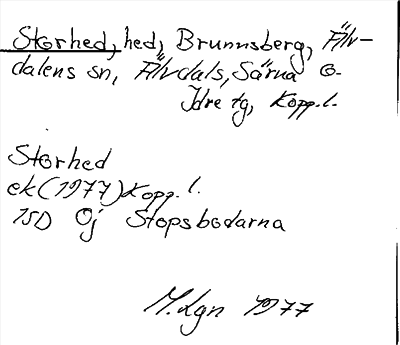 Storhed, hed, Brunnsberg, Älv-
dalens sn, Älvdals, Särna o.
Idre tg, Kopp.l.
Storhed
ek (1977) Kopp. l.
15D Öj Stopsbodarna
M.Lgn 1977